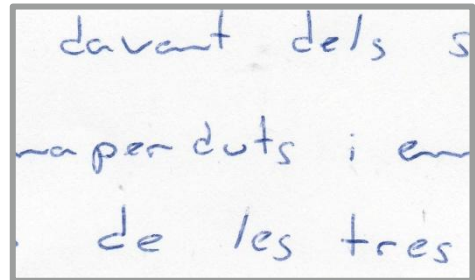 davant dels s
naperduts i en
de les tres